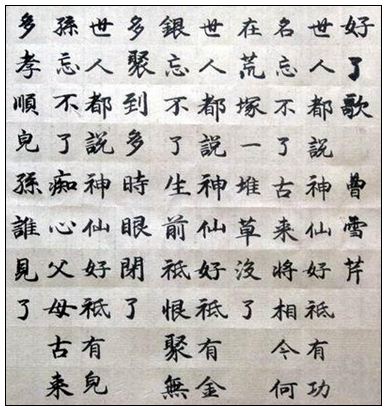 好了歌曹雪芹
世人都說神仙好祗有功
名忘不了古来將相今何
在荒塚一堆草没了
世人都說神仙好祗有金
銀忘不了生前祗恨聚無
多聚到多時眼閉了
世人都說神仙好祗有兒
孫忘不了痴心父母古来
多孝順兒孫誰見了